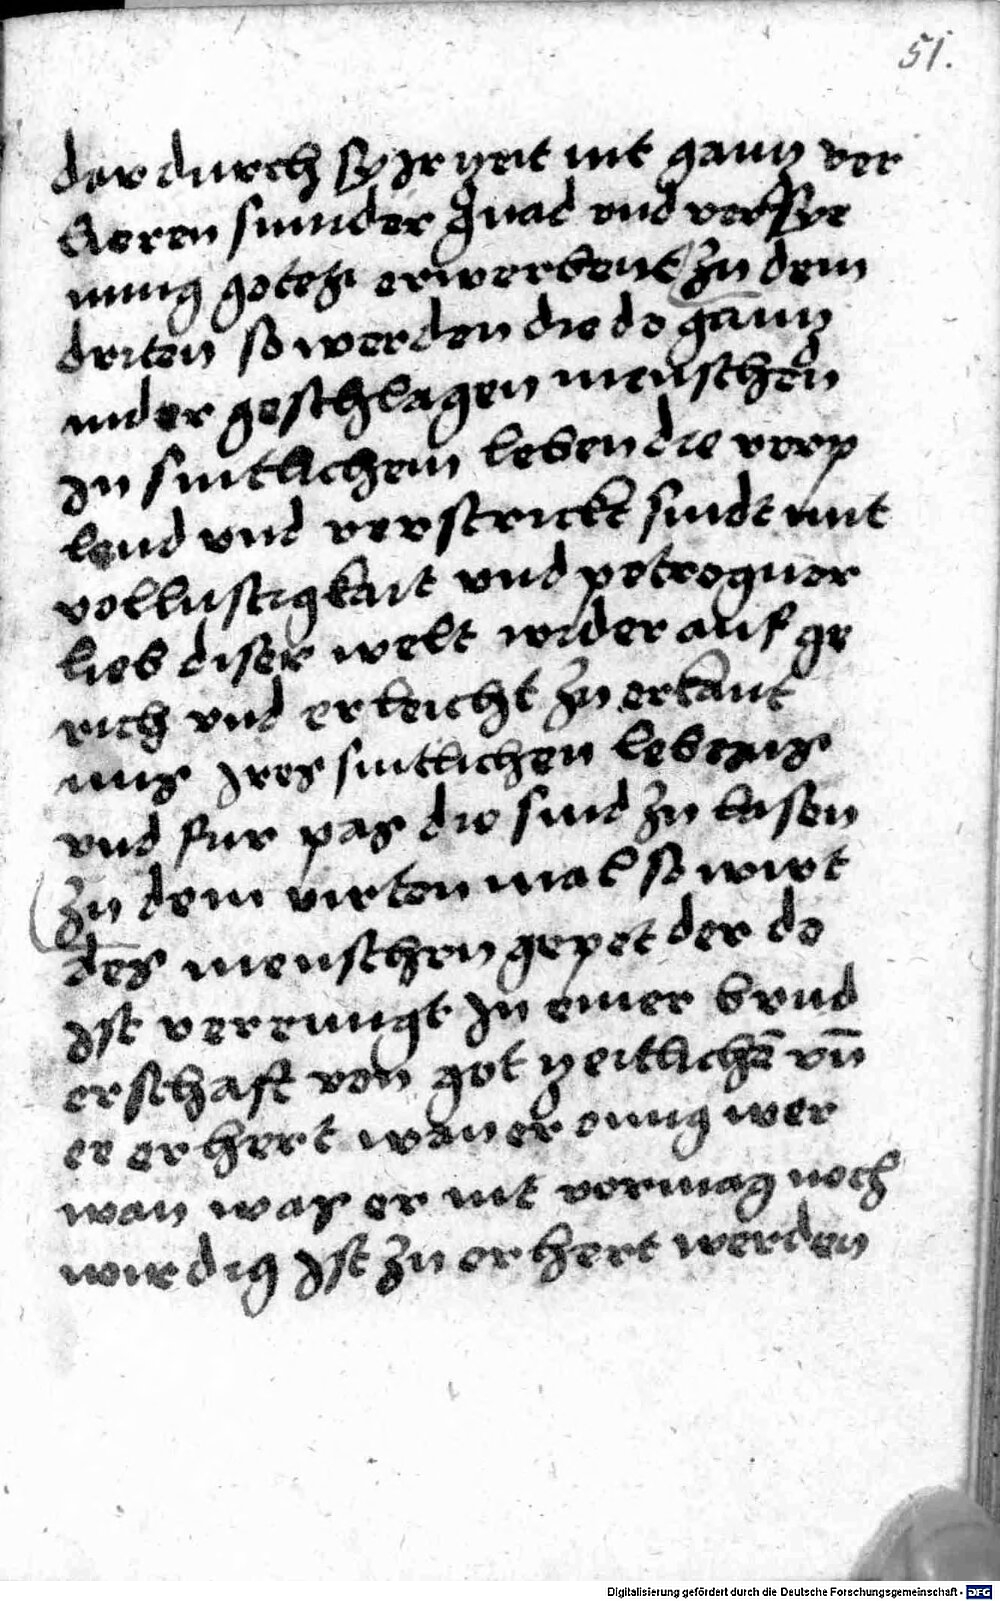 51.
dar durch sy Jr zeit nit gantz ver
lieren sunnder gnad vnd versye
nung gotes erwerbent Zu dem
driten so werden die do gantz
nider geschlagen menschen
Jn sintlichem leben die verp
lend vnd verstrickt sindt mit
vollustigkait vnd petrogner
lieb diser welt wider auf ge
rich vnd erleicht zu erkant
nus Jres sintlichen lebens
vnd fur pas die sund zu lasen
Zu dem virten mal so wirt
des menschen gepet der do
Jst vereinigt Jn einer brud
erschaft von got zeitlichē vn̄
ee erhert wan er einig wer
wan was er nit vermag noch
wirdig Jst zu erhert werden
Digitalisierung gefördert durch die Deutsche Forschungsgemeinschaft - DFG